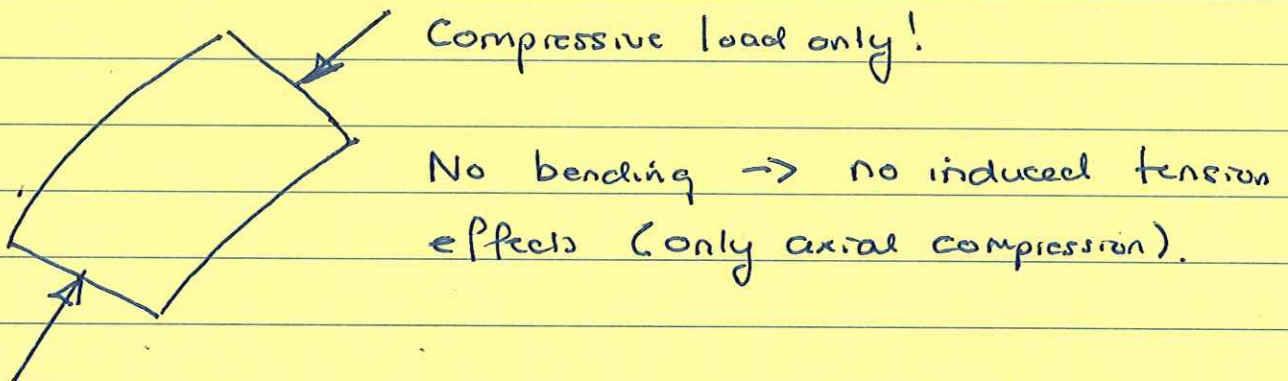 Compressive load only!
No bending -> no induced tension
effects (only axial compression).